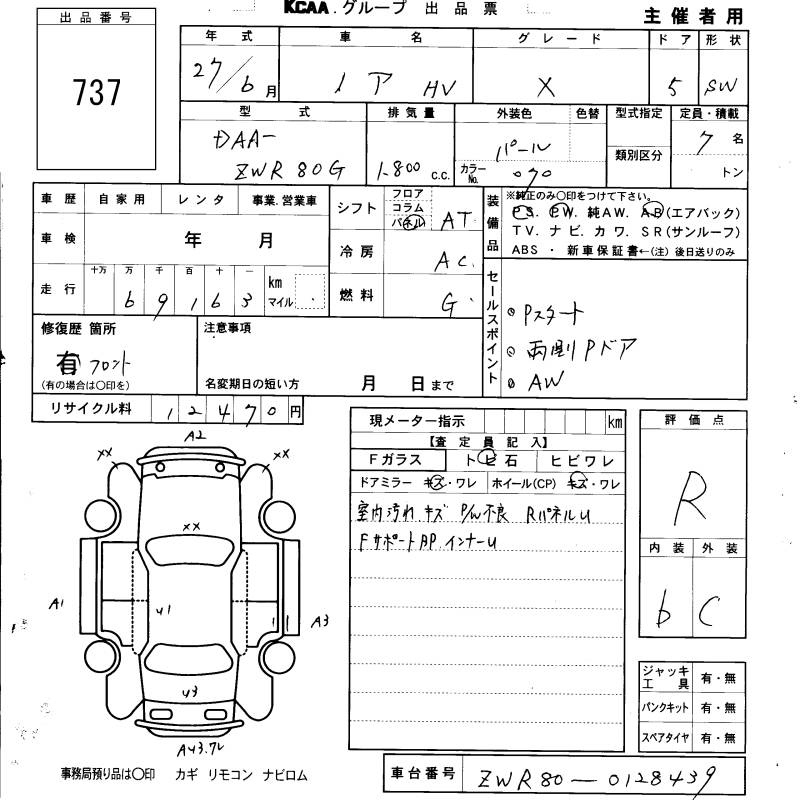 KCAA.グループ 出品票
主催者用
出品番号
737
年式 車名 グレード ドア 形状
27/6月 ノア HV X 5 SW
型式 排気量 外装色 色替 型式指定 定員・積載
DAA-
ZWR80G 1.800 c.c. パール
カラーNo. 070 類別区分 7名
トン
車歴 自家用 レンタ 事業.営業車
車検 年 月
走行 十万 万 千 百 十 一 km マイル
6 9 1 6 3
シフト フロア コラム パネル AT
冷房 AC
燃料 G
装備品
※純正のみ○印をつけて下さい。
PS. PW. 純AW. AB(エアバック)
TV. ナビ. カワ. SR(サンルーフ)
ABS ・ 新車保証書←(注)後日送りのみ
セールスポイント
Pスタート
両側Pドア
AW
修復歴 箇所
有 フロント
(有の場合は○印を)
注意事項
名変期日の短い方 月 日まで
リサイクル料 12470円
現メーター指示 km
【査定員記入】
Fガラス トビ石 ヒビワレ
ドアミラー キズ・ワレ ホイール(CP) キズ・ワレ
室内汚れ キズ P/W不良 RパネルU
FサポートBP インナーU
評価点
R
内装 外装
b C
ジャッキ工具 有・無
パンクキット 有・無
スペアタイヤ 有・無
A2
XX XX
XX
A1 U1 A3
U3
事務局預り品は○印 カギ リモコン ナビロム
車台番号 ZWR80-0128439